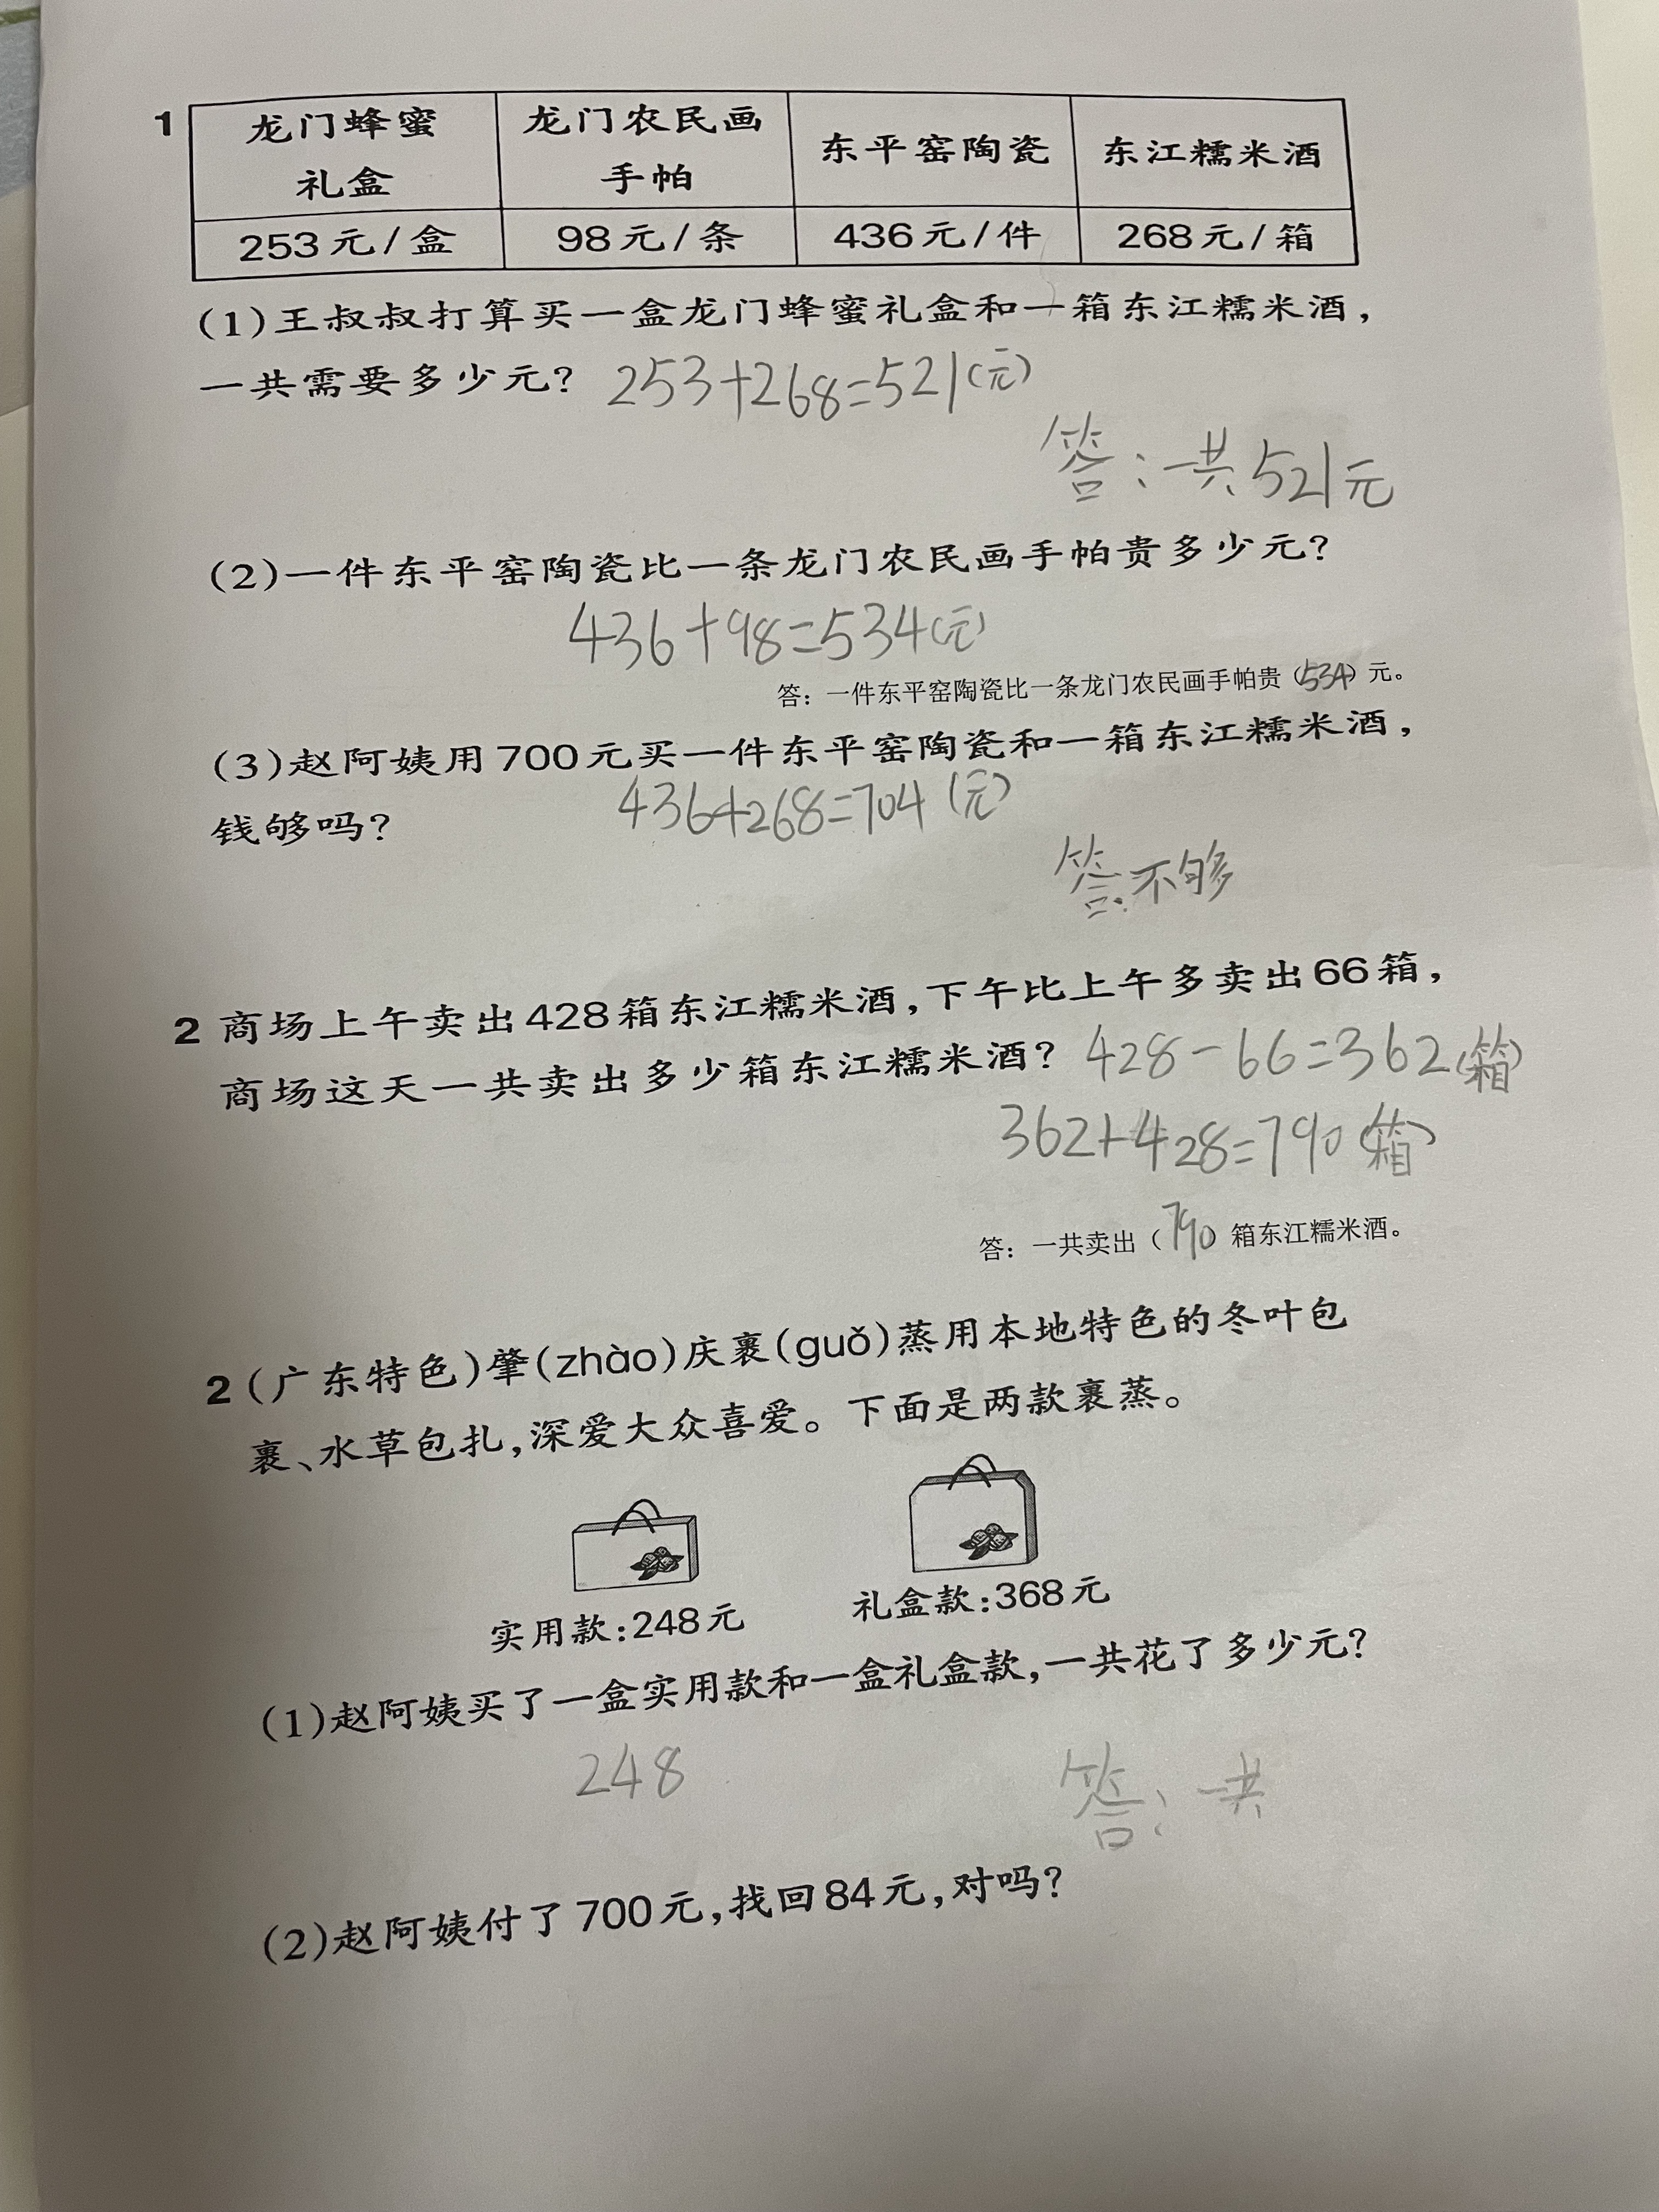 1
龙门蜂蜜礼盒 龙门农民画手帕 东平窑陶瓷 东江糯米酒
253元/盒 98元/条 436元/件 268元/箱
(1)王叔叔打算买一盒龙门蜂蜜礼盒和一箱东江糯米酒,
一共需要多少元? 253+268=521(元)
答:一共521元
(2)一件东平窑陶瓷比一条龙门农民画手帕贵多少元?
436+98=534(元)
答:一件东平窑陶瓷比一条龙门农民画手帕贵(534)元。
(3)赵阿姨用700元买一件东平窑陶瓷和一箱东江糯米酒,
钱够吗? 436+268=704(元)
答:不够
2 商场上午卖出428箱东江糯米酒,下午比上午多卖出66箱,
商场这天一共卖出多少箱东江糯米酒? 428-66=362(箱)
362+428=790(箱)
答:一共卖出(790)箱东江糯米酒。
2 (广东特色)肇(zhào)庆裹(guǒ)蒸用本地特色的冬叶包
裹、水草包扎,深爱大众喜爱。下面是两款裹蒸。
实用款:248元 礼盒款:368元
(1)赵阿姨买了一盒实用款和一盒礼盒款,一共花了多少元?
248 答:一共
(2)赵阿姨付了700元,找回84元,对吗?